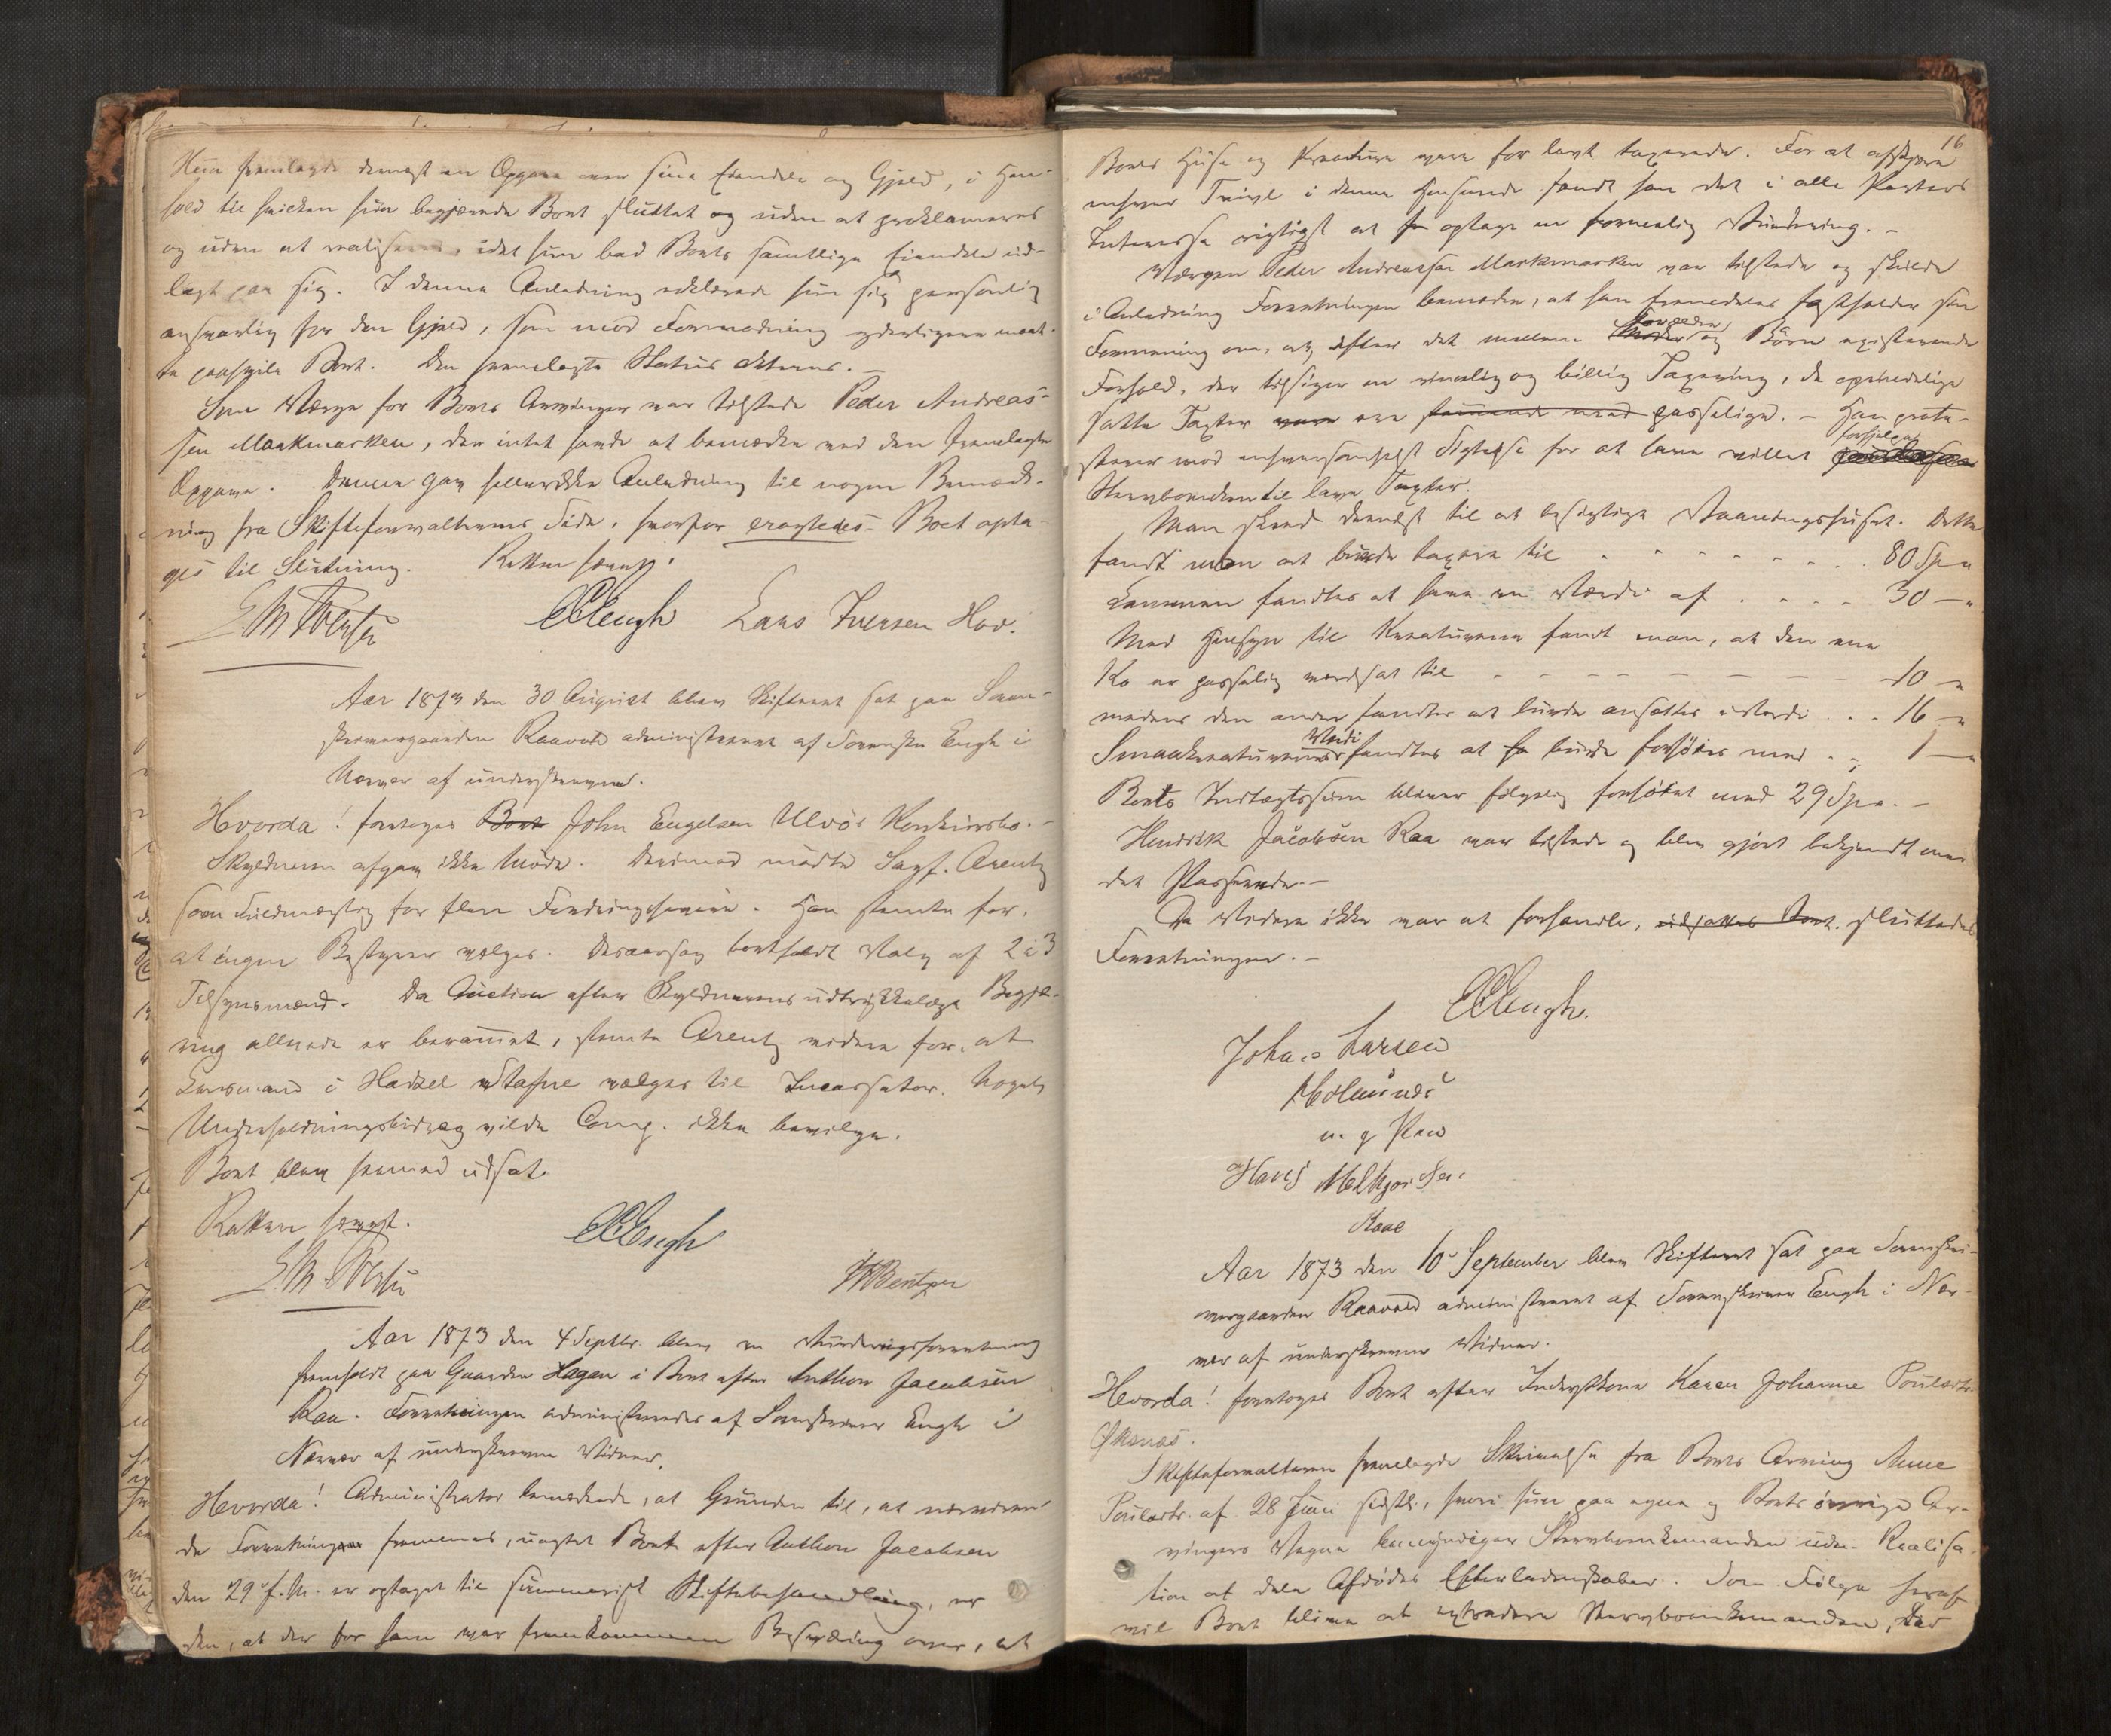 Hun fremlagde dernæst en Opgave over sine Eiendele og Gjæld, i Hen-
hold til hvilken hun begjærede Boet sluttet og uden at proklameres
og uden at realiseres, idet hun bad Boets samtlige Eiendele ud-
lagt paa sig. I denne Anledning erklærede hun sig personlig
ansvarlig for den Gjæld, som mod Formodning yderligere maat-
te paahvile Boet. Den fremlagte Status akteres. –
Som Værge for Boets Arvinger var tilstede Peder Andreas-
sen Markmarken, der intet havde at bemærke ved den fremlagte
Opgave. Denne gav hellerikke Anledning til nogen Bemærk-
ning fra Skifteforvalterens Side, hvorfor eragtedes Boet opta-
ges til Slutning. Retten hævet.
CCEngh Lars Iversen Hov.
Aar 1873 den 30 August blev Skifteret sat paa Soren-
skrivergaarden Raavold administreret af Sorenskr Engh i
Nærvær af underskrevne.
Hvorda! foretoges Boet John Engelsen Ulvös Konkursbo. –
Skyldneren afgav ikke Møde. Derimod mødte Sagf. Arentz
som Fuldmægtig for flere Fordringshavere. Han stemte for,
at ingen Bestyrer vælges. Desaarsag bortfaldt Valg af 2 à 3
Tilsynsmænd. Da Auction efter Skyldnerens udtrykkelige Begjæ-
ring allerede er berammet, stemte Arentz videre for, at
Lensmand i Hadsel Stafne vælges til Incassator. Noget
Underholdningsbidrag vilde Comp. ikke bevilge.
Boet blev hermed udsat.
Retten hævet.
CCEngh
Bentzen
Aar 1873 den 4 Septbr. blev en Vurderingsforretning
fremholdt paa Gaarden Hagen i Boet efter Anthon Jacobsen
Raa. Forretningen administreredes af Sorenskriver Engh i
Nærvær af underskrevne Vidner.
Hvorda! Administrator bemærkede, at Grunden til, at nærværen-
de Forretning fremmes, uagtet Boet efter Anthon Jacobsen
den 29 f. M. er optaget til summarisk Skiftebehandling, er
den, at der for ham var fremkommen Besværing over, at
16
Boets Huse og Kreaturer vare for lavt taxerede. For at afskjære
enhver Tvivl i denne Henseende fandt han det i alle Parters
Interesse rigtigst at optage en formelig Vurdering. –
Værgen Peder Andreassen Markmarken var tilstede og
i Anledning Forretningen bemærke, at han fremdeles fastholder sin
Formening om, at, efter det mellem Forældre og Børn existerende
Forhold, der tilsiger en rimelig og billig Taxering, de opindelige
satte Taxter vare ere stemmende med passelige. – Han prote-
sterer mod enhversomhelst Sigtelse for at have villet forhjelpe
Stervboenken til lave Taxter.
Man skred dernæst til at besigtige Vaaningshuset. Dette
fandt man at burde taxere til . . . . . . . 80 Sp "
Laaven fandtes at have en Værdi af . . . . 30 – "
Med Hensyn til Kreaturerne fandt man, at den ene
Ko er passelig værdsat til – – – – – – – – 10 – "
medens den anden fandtes at burde ansættes i Værdi . . . 16 – "
Smaakreaturernes Værdi fandtes at burde forhøies med . . 1 – "
Boets Indtægtssum bliver følgelig forhøiet med 29 Spd. –
Hendrik Jacobsen Raa var tilstede og blev gjort bekjendt med
det Passerede. –
Da Videre ikke var at forhandle, udsattes Boet. sluttedes
Forretningen. –
CCEngh.
Johan Larsen
Holmsnæs
m. p. Pen
Hans Melkjorsen
Raae
Aar 1873 den 10 September blev Skifteret sat paa Sorenskri-
vergaarden Raavold administreret af Sorenskriver Engh i Nær-
vær af underskrevne Vidner.
Hvorda! foretoges Boet efter Inderstkone Karen Johanne Poulsdtr.
Øksnæs.
Skifteforvalteren fremlagde Skrivelse fra Boets Arving Anne
Poulsdtr. af 28 Juni sidstl., hvori hun paa egne og Boets øvrige Ar-
vingers Vegne bemyndiger Stervboenkemanden uden Realisa-
tion at dele Afdødes Efterladenskaber. Som Følge heraf
vil Boet blive at extradere Stervboenkemanden, der